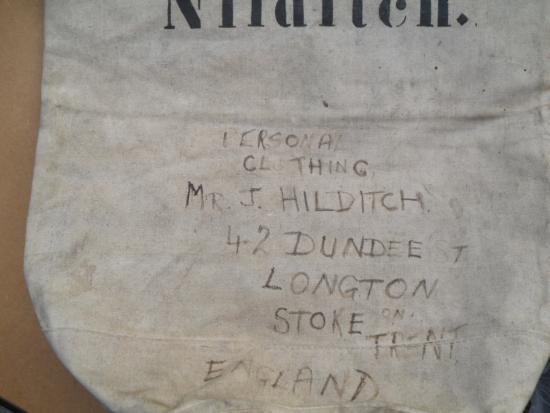 Nilditch.
PERSONAL
CLOTHING
MR. J. HILDITCH
42 DUNDEE ST
LONGTON
STOKE ON
TRENT
ENGLAND